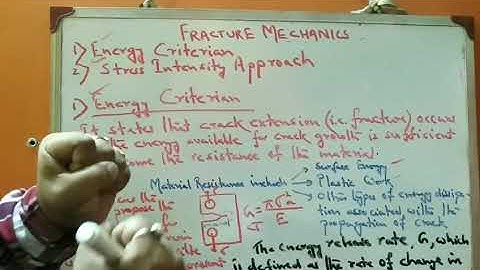 FRACTURE MECHANICS
1) Energy Criterian
2) Stress Intensity Approach
1) Energy Criterian
It states that crack extension (i.e. fracture) occurs
the energy available for crack growth is sufficient
come the resistance of the material.
Material Resistance include:
Surface Energy
Plastic Work
Other types of energy dissipation
ation associated with the
propagation of crack
G = πσ²a
E
The energy release rate, G, which
is defined as the rate of change in